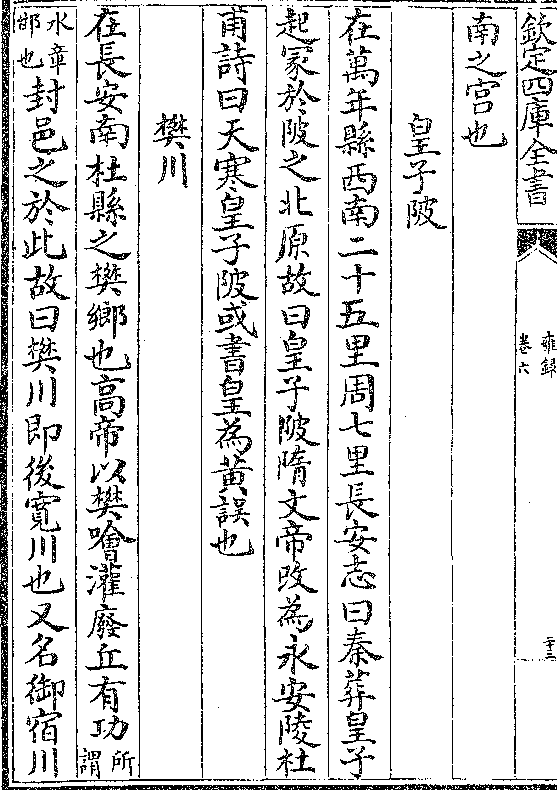 欽定四庫全書
雍録
卷六
南之宫也
皇子陂
在萬年縣西南二十五里周七里長安志曰秦葬皇子
起冢於陂之北原故曰皇子陂隋文帝改為永安陵杜
甫詩曰天寒皇子陂或書皇為黄誤也
樊川
在長安南杜縣之樊鄉也高帝以樊噲灌廢丘有功所謂
水章邯也封邑之於此故曰樊川即後寛川也又名御宿川